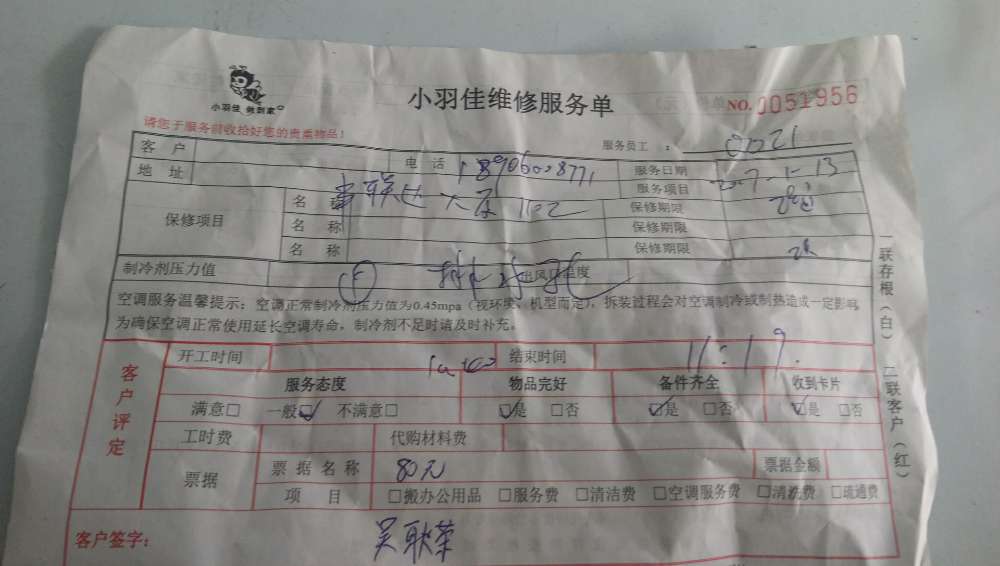 小羽佳 做到家
小羽佳维修服务单
NO. 0051956
请您于服务前收拾好您的贵重物品！
服务员工：
客户 电话 18906008771 服务日期
地址 服务项目
保修项目 名称 保修期限
名称 保修期限
名称 保修期限
制冷剂压力值 出风口温度
空调服务温馨提示：空调正常制冷剂压力值为0.45mpa（视环境、机型而定），拆装过程会对空调制冷或制热造成一定影响
为确保空调正常使用延长空调寿命，制冷剂不足时请及时补充。
一联存根（白） 二联客户（红）
客户评定
开工时间 结束时间 11:19
服务态度 物品完好 备件齐全 收到卡片
满意□ 一般☑ 不满意□ ☑是 □否 ☑是 □否 ☑是 □否
工时费 代购材料费
票据 票据名称 80元 票据金额
项目 □搬办公用品 □服务费 □清洁费 □空调服务费 □清洗费 □疏通费
客户签字： 吴联荣